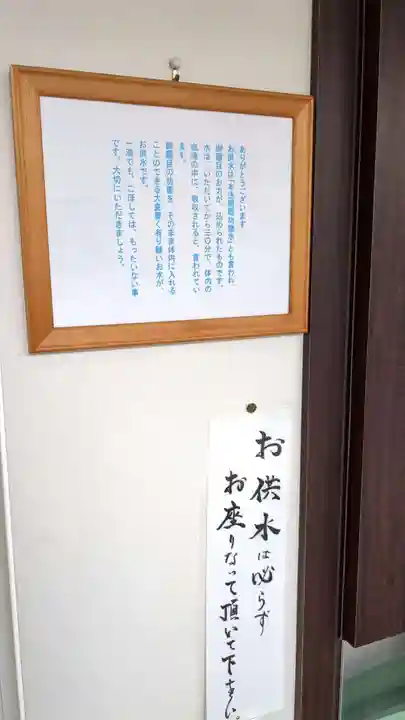 ありがとうございます
お供水は「
」とも言われ、
御題目のお力が、込められたものです。
水は、いただいてから三〇分で、体内の
の中に、吸収されると、言われてい
ます。
御題目の功徳を、そのまま体内に入れる
ことのできる大変尊く有り難いお水が、
お供水です。
一滴でも、こぼしては、もったいない事
です。大切にいただきましょう。
お供水は必らず
お座りなって頂いて下さい。